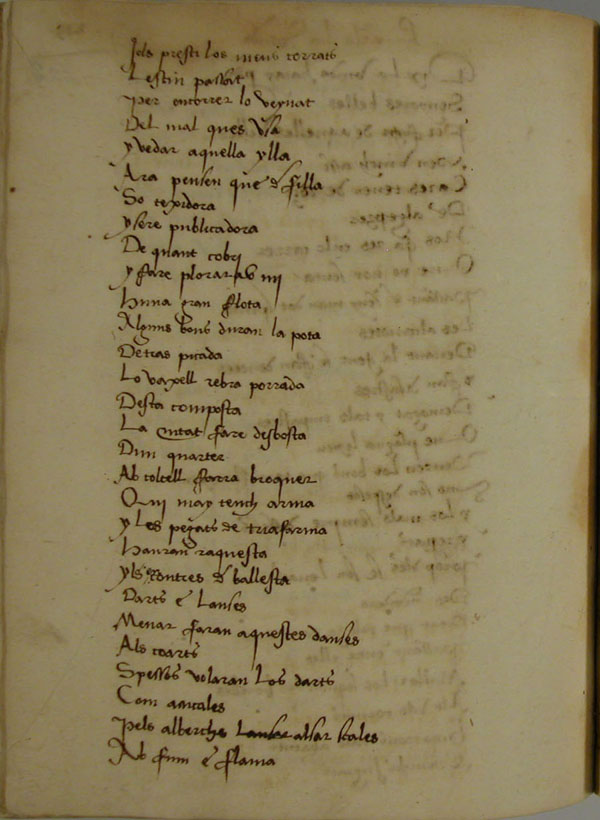 Jals presti los meus torrats
Lestin passat
Per entorrer lo veynat
Del mal ques usa
y vedar aquella ylla
Ara pensen que d filla
So texidora
y sere publicadora
De quant cobri
y fare plorar ab mi
huna gran flota
Alguns bons duran la pota
Detras picada
Lo vaxell rebra porrada
Desta composta
La ciutat fare desbosta
Dun quarter
Ab coltell farra broquer
Qui may tench arma
y les pegats de triafarina
hauran raquesta
yls contres d ballesta
Darts e lanses
Menar faran aquestes danses
Als coarts
Spessos volaran los darts
Com acales
Pels alberchs alsar scales
Ab fum e flama